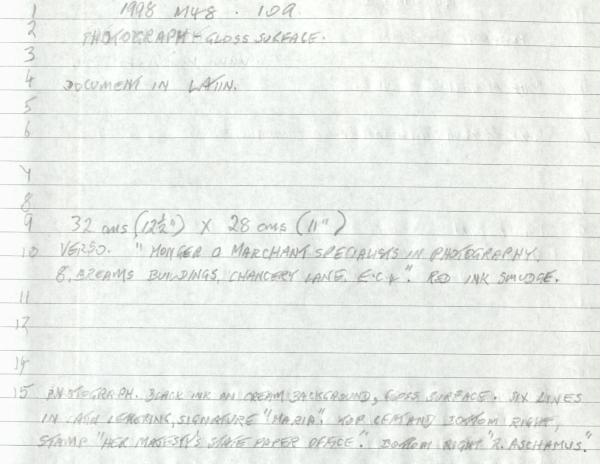 1 1998 M48 . 109.
2 PHOTOGRAPH - GLOSS SURFACE.
3
4 DOCUMENT IN LATIN.
5
6
7
8
9 32 cms (12½") X 28 cms (11")
10 VERSO. "MONGER & MARCHANT SPECIALISTS IN PHOTOGRAPHY,
8, BREAMS BUILDINGS, CHANCERY LANE, E.C.4". RED INK SMUDGE.
11
12
14
15 PHOTOGRAPH. BLACK INK ON CREAM BACKGROUND, GLOSS SURFACE. SIX LINES
IN LETTERING, SIGNATURE "MARIA" TOP LEFT AND BOTTOM RIGHT,
STAMP "HER MAJESTY'S STATE PAPER OFFICE". BOTTOM RIGHT "R. ASCHAMUS."